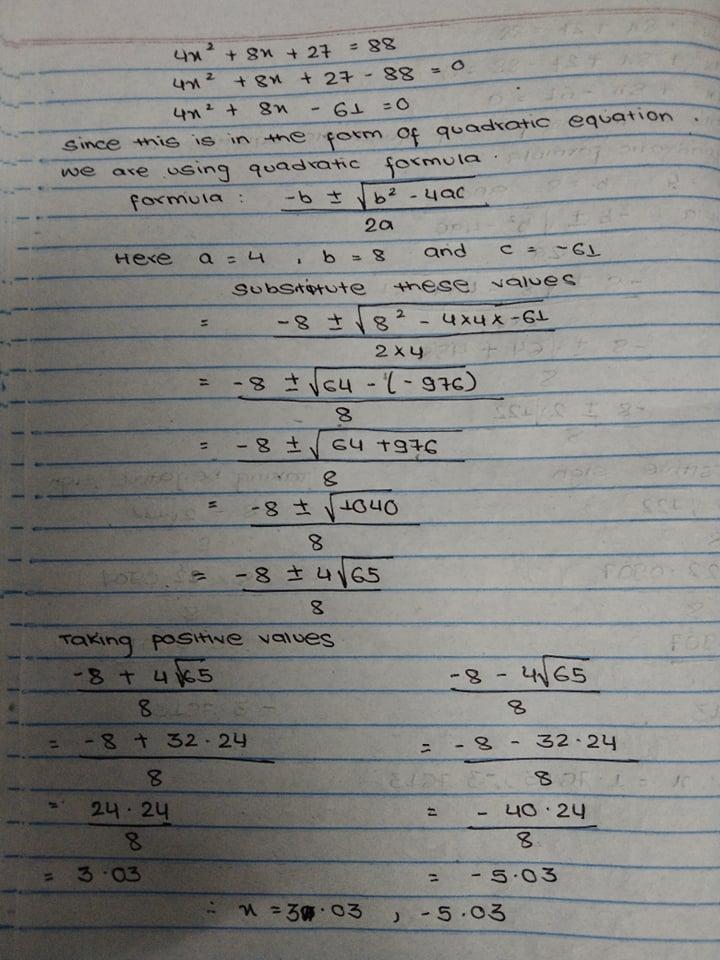 4x² + 8x + 27 = 88
4x² + 8x + 27 - 88 = 0
4x² + 8x - 61 = 0
Since this is in the form of quadratic equation.
we are using quadratic formula.
formula : -b ± √b² - 4ac / 2a
Here a = 4 , b = 8 and c = -61
substitute these values
= -8 ± √8² - 4×4×-61 / 2×4
= -8 ± √64 - (-976) / 8
= -8 ± √64 + 976 / 8
= -8 ± √1040 / 8
= -8 ± 4√65 / 8
Taking positive values
-8 + 4√65 / 8
= -8 + 32.24 / 8
= 24.24 / 8
= 3.03
-8 - 4√65 / 8
= -8 - 32.24 / 8
= -40.24 / 8
= -5.03
∴ x = 3.03 , -5.03